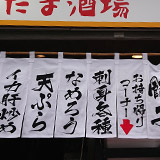 たま酒場
お持ち帰り
コーナー
刺身各種
なめろう
天ぷら
イカ肝炒め